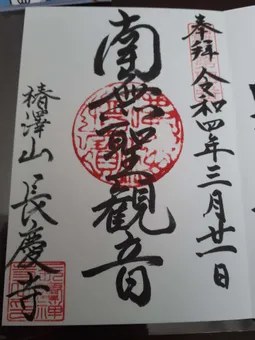 奉拝 令和四年三月廿一日
南無聖観音
椿澤山 長慶寺